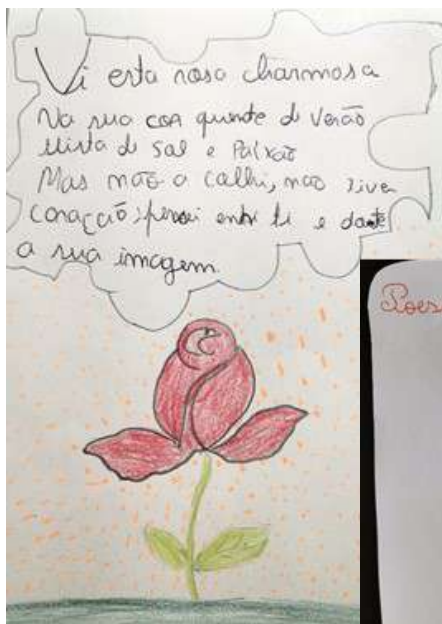 Vi esta rosa charmosa
Na sua cor quente de Verão
Mista de Sal e Paixão
Mas não a colhi, não tive
coração; pensei em ti e
a sua imagem.
Poes